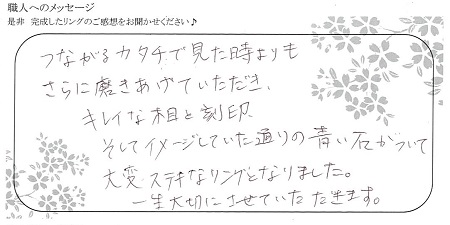 職人へのメッセージ
是非 完成したリングのご感想をお聞かせください♪
つながるカタチで見た時よりも
さらに磨きあげていただき、
キレイな相と刻印
そしてイメージしていた通りの青い石がついて
大変ステキなリングとなりました。
一生大切にさせていただきます。